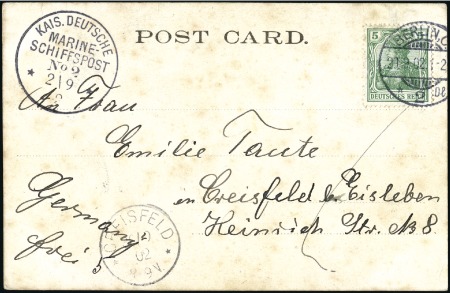 KAIS. DEUTSCHE
MARINE-
SCHIFFSPOST
No 2
2/9
POST CARD.
5
DEUTSCHES REICH
BERLIN, C.
02
An Frau
Emilie Taute
in Creisfeld b/Eisleben
Heinrich Str. No 8.
Germany
frei 5
CREISFELD
02